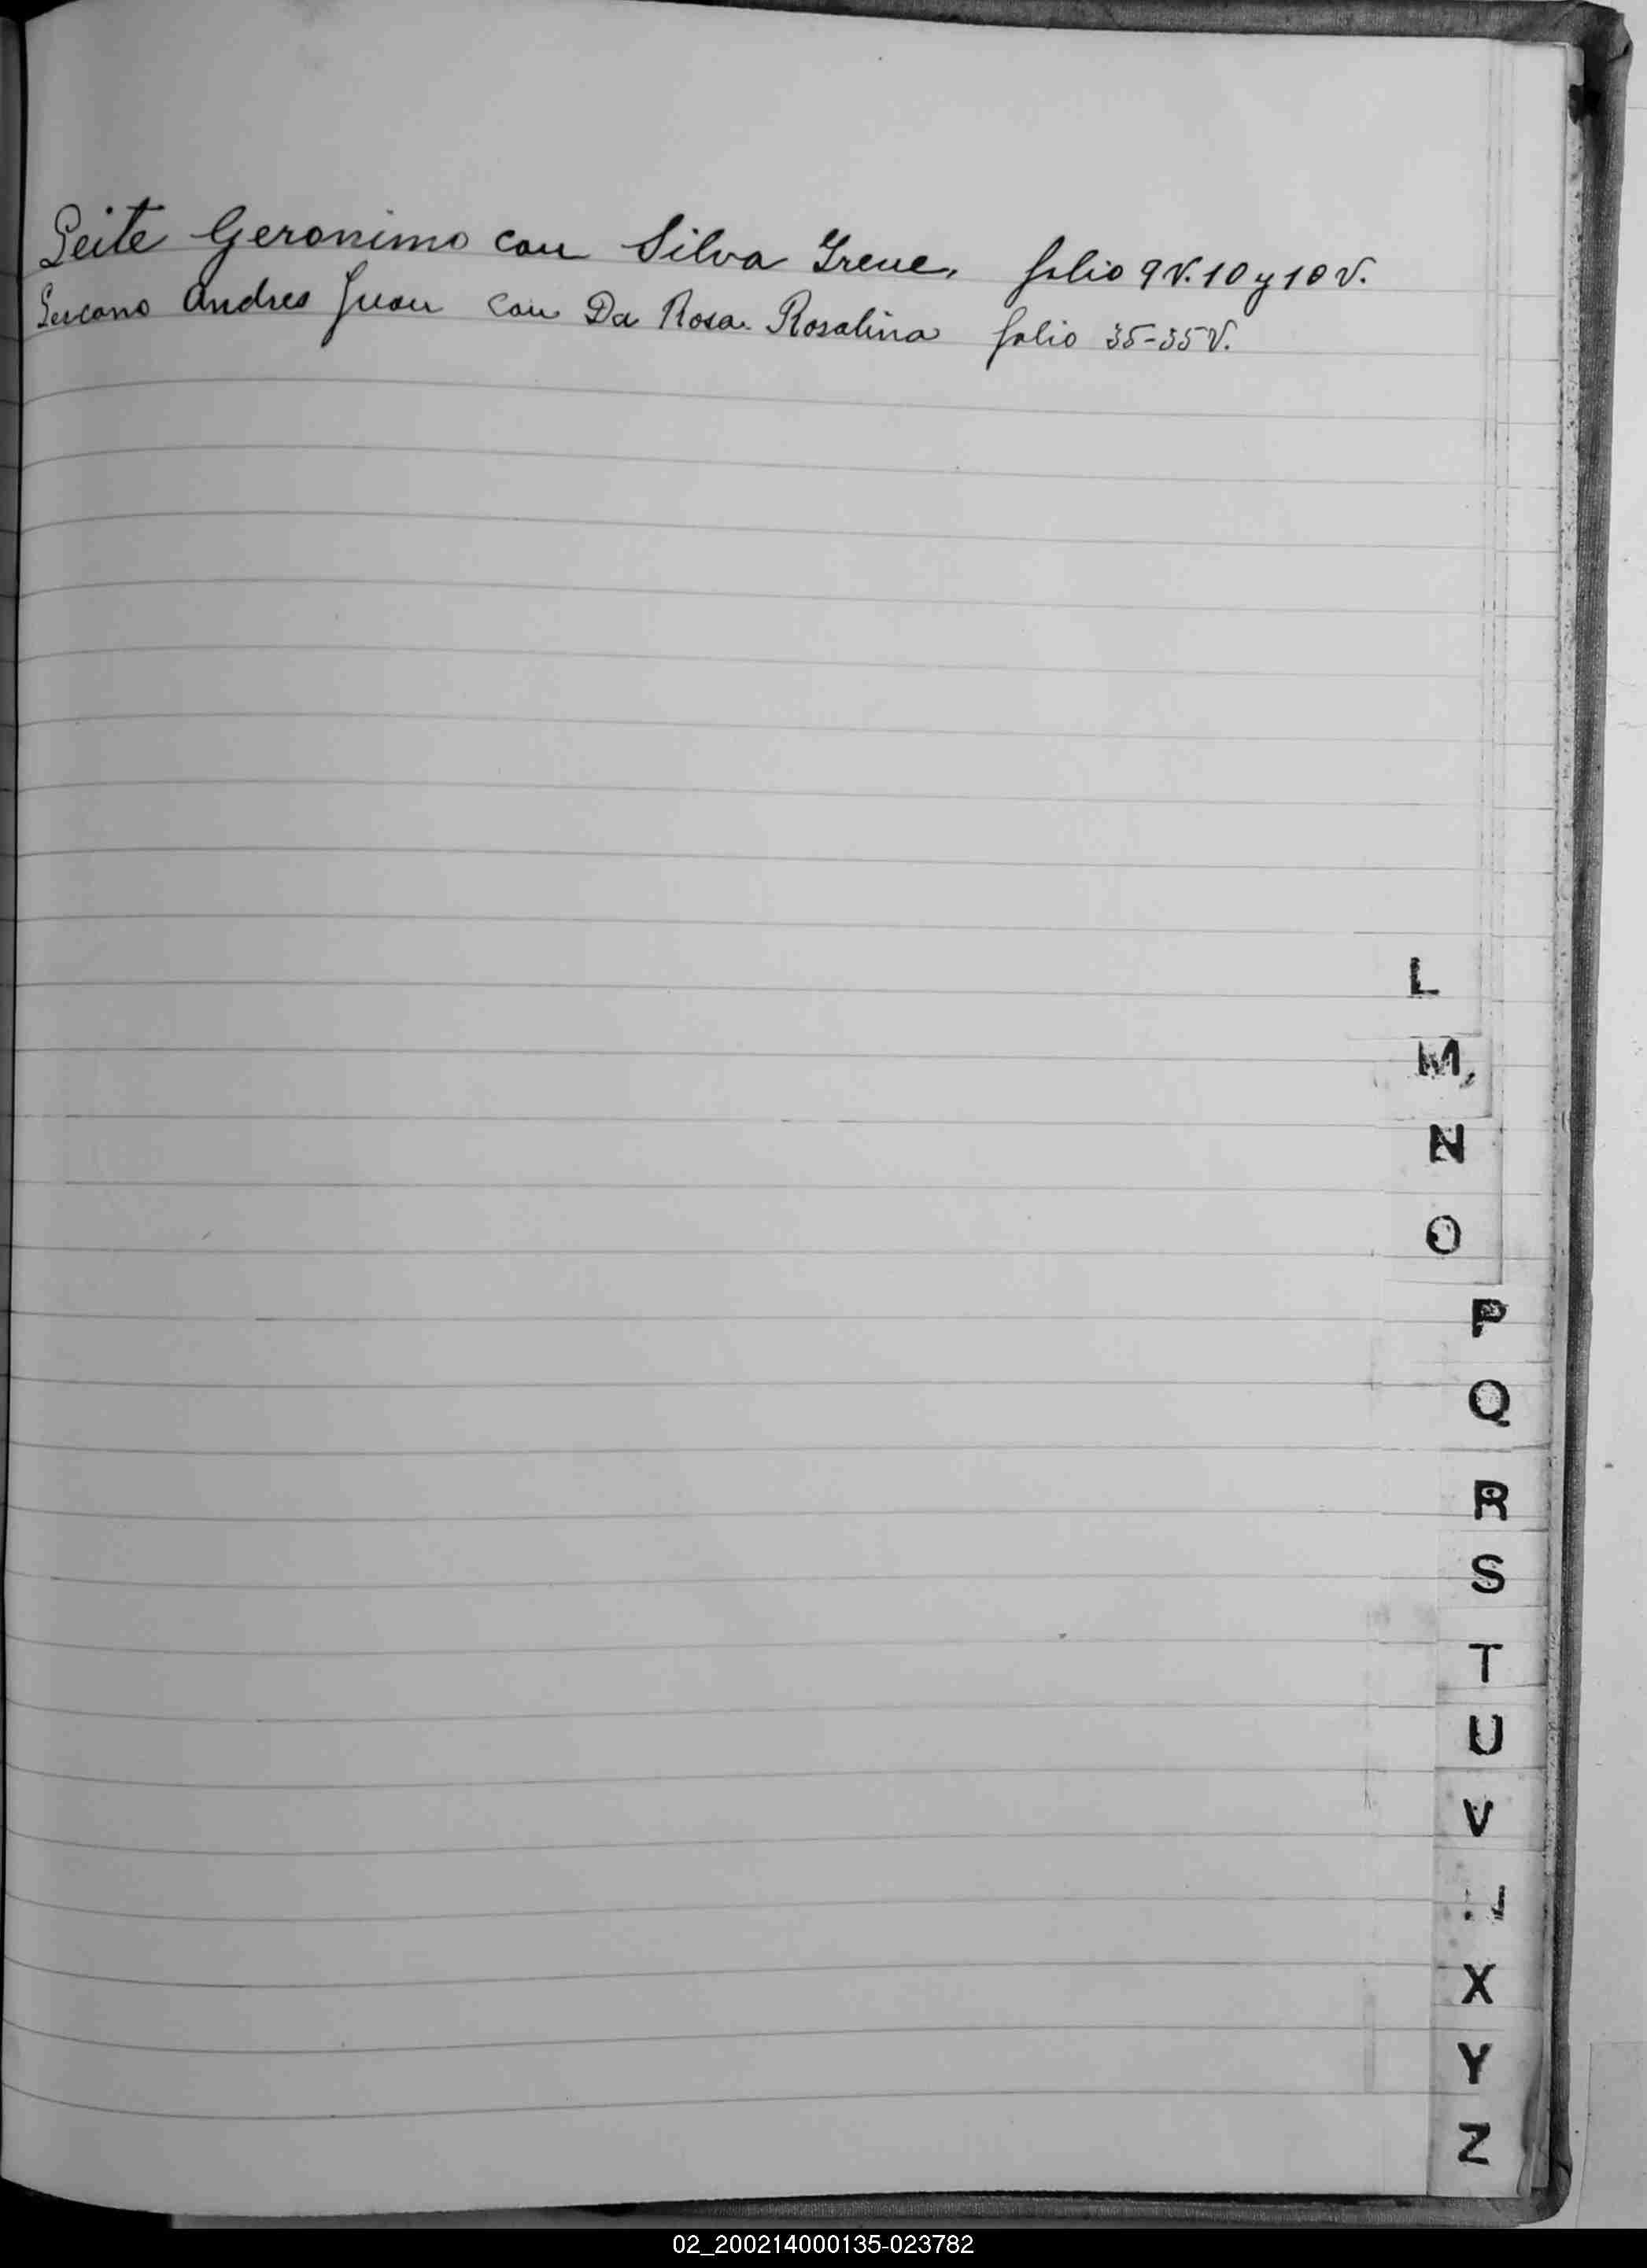 Leite Geronimo con Silva Irene, folio 9V.10 y 10V.
Lescano Andres Juan con Da Rosa Rosalina folio 35-35V.
L
M
N
O
P
Q
R
S
T
U
V
X
Y
Z
02_200214000135-023782